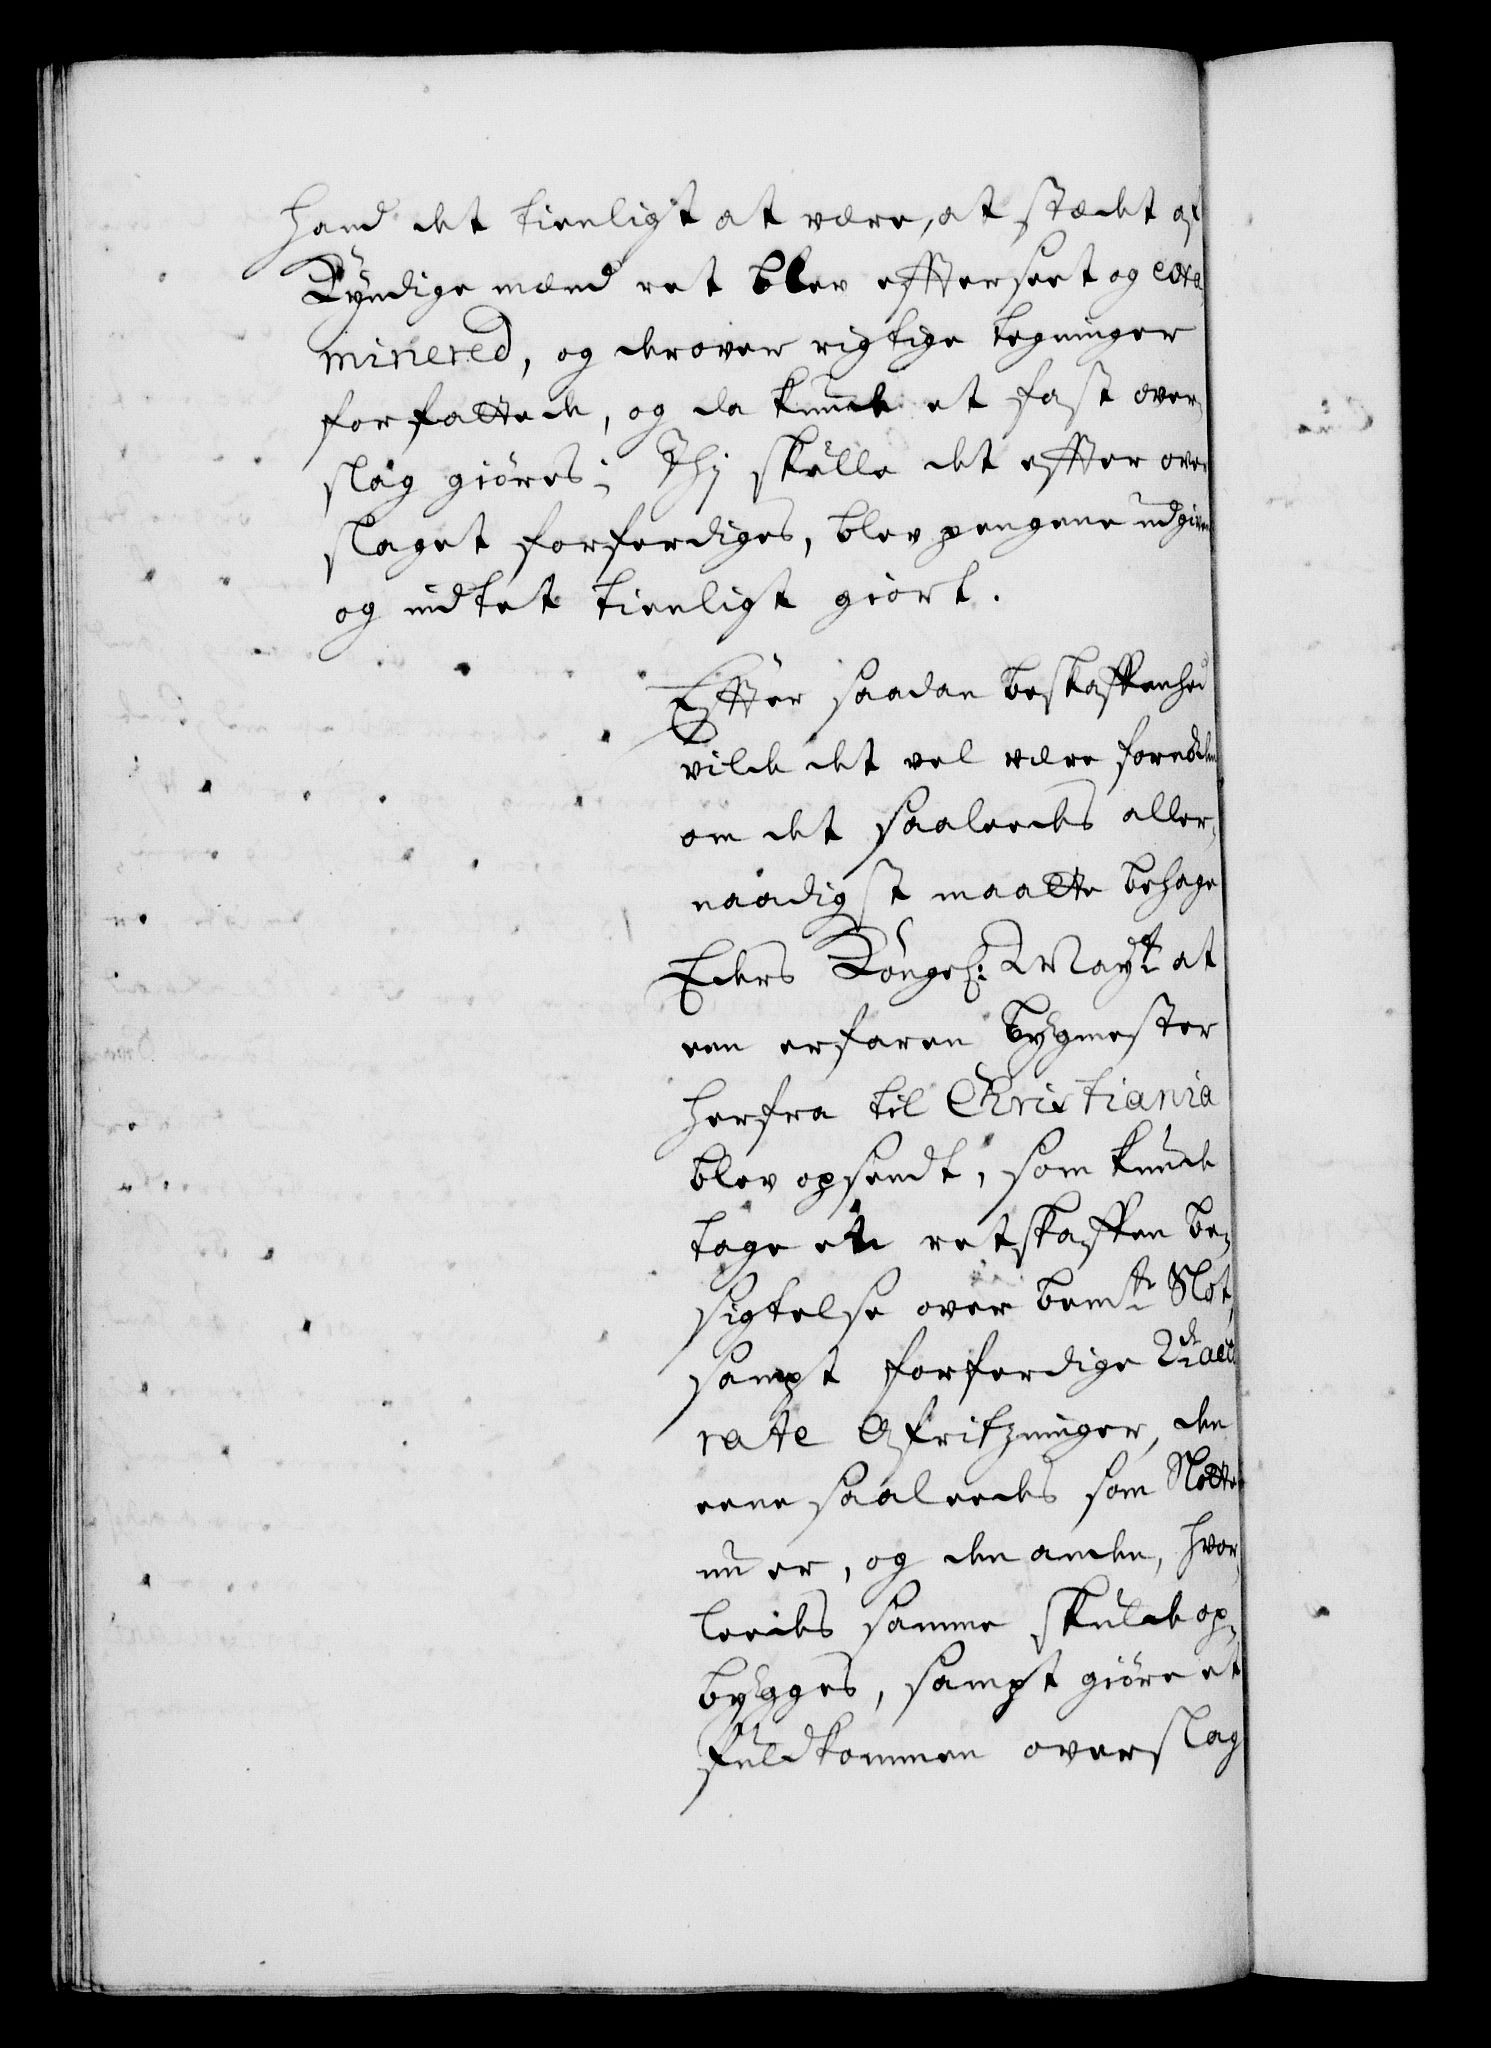 hand det tienligst at være, at stædet af
Kyndige mænd ret blev effterseet og exa
minered, og derover rigtige tegninger
forfattede, og da kunde et fast over,
slag giöres; Thj skulle det effter over
slaget forferdiges, blev pengene udgiven
og indtet tienligt giort.
Effter saadan beskaffenhed
vilde det vel være fornöden
om det saaleedes aller,
naadigst maatte behage
Eders Kongel: May:t at
een erfaren bygmester
herfra til Christiania
blev opsendt, som kunde
tage en retskaffen be,
sigtelse over bem:te Slot,
sampt forferdige 2:de accu
rate Afritzninger, den
eene saaleedes som Slottet
nu er, og den anden, hvor,
leedes samme skulde op,
bygges, sampt giöre et
fuldkommen overslag